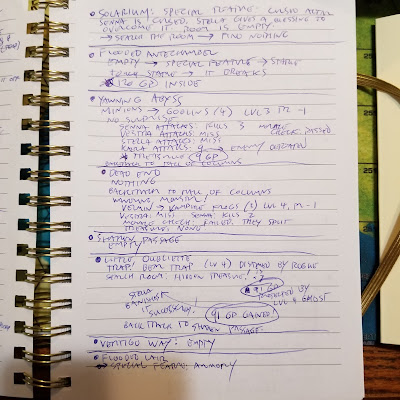 • SOLARIUM: SPECIAL FEATURE: CURSED ALTAR
SENNA IS CURSED. STELLA GIVES A BLESSING TO
OVERCOME IT. ROOM IS EMPTY
→ SEARCH THE ROOM → FIND NOTHING
• FLOODED ANTECHAMBER
EMPTY → SPECIAL FEATURE → STATUE
TOUCH STATUE → IT BREAKS
GP INSIDE
• YAWNING ABYSS
MINIONS → GOBLINS (4) LVL 3 M -1
NO SURPRISE
SENNA ATTACKS: KILLS 3 MORALE
ATTACKS: MISS CHECK PASSED
STELLA ATTACKS: MISS
ATTACKS: → ENEMY DEFEATED
* TREASURE 9 GP
BACKTRACK TO HALL OF COLUMNS
• DEAD END
NOTHING
BACKTRACK TO HALL OF COLUMNS
WANDERING MONSTER!
VERMIN → VAMPIRE FROGS LVL 4, M -1
MISS SENNA KILLS 2
MORALE CHECK: FAILED. THEY SPLIT
TREASURE: NONE
• PASSAGE
EMPTY
• LITTLE OUBLIETTE
TRAP! BEAR TRAP (LV 4) DISARMED BY ROGUE
SEARCH ROOM: HIDDEN TREASURE!
GP
STELLA PROTECTED BY
LVL 4 GHOST
SUCCESSFUL!
91 GP GAINED
BACKTRACK TO PASSAGE
• VERTIGO WAY: EMPTY
• FLOODED LAIR
→ SPECIAL FEATURE: ARMORY